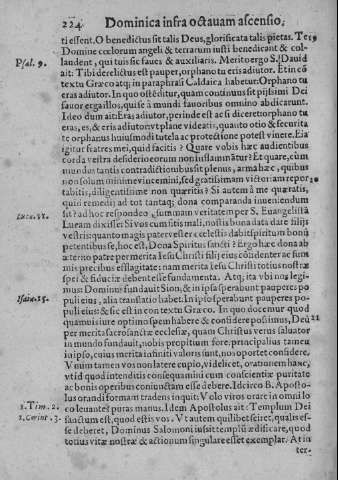 224 Dominica infra octauam ascensio,
ti essent. O benedictus sit talis Deus, glorificata talis pietas. Te 19
Domine cœlorum angeli & terrarum iusti benedicant & col-
Psal. 9. laudent, qui tuis sic faues & auxiliaris. Meritò ergo S. Dauid
ait: Tibi derelictus est pauper, orphano tu eris adiutor. Et in cō
textu Græco atq; in paraphrasi Caldaica habetur. Orphano tu
eras adiutor. In quo ostēditur, quam continuus sit pijssimi Dei
fauor erga illos, qui se à mundi fauoribus omnino abdicarunt.
Ideo dum ait: Eras adiutor, perinde est ac si diceret: orphano tu
eras, es, & eris adiutor vt plane videatis, quanto otio & securita
te orphanus huiusmodi tutela ac protectiōe potest viuere. Eia
igitur fratres mei, quid facitis? Quare vobis hæc audientibus
corda vestra desideriorum non inflammātur? Et quare, cùm
mundus tantis contradictionibus sit plenus, arma hæc, quibus
non solum minime vincemini, sed gratissimam victoriam repor 20
tabitis, diligentissime non quæritis? Si autem à me quæratis,
quid remedij ad tot tantaq; dona comparanda inueniendum
Luca. 11. sit? ad hoc respondeo, summam veritatem per S. Euangelistā
Lucam dixisse: Si vos cum sitis mali, nostis bona data dare filijs
vestris: quanto magis pater vester cælestis dabit spiritum bonū
petentibus se, hoc est, Dona Spiritus sancti? Ergo hæc dona ab
æterno patre per merita Iesu Christi filij eius cōfidenter ac sum
mis precibus efflagitate: nam merita Iesu Christi totius nostræ
spei & fiduciæ debent esse fundamenta. Atq; ita vbi nos legi-
mus: Dominus fundauit Sion, & in ipsa sperabunt pauperes po
Isaia. 14. puli eius, alia translatio habet. In ipso sperabunt pauperes po-
puli eius: & sic est in cōtextu Græco. In quo docemur quod
quamuis iure optimo spem habere & confidere possimus, Deū 21
per merita sacrosanctæ ecclesiæ, quam Christus verus saluator
in mundo fundauit, nobis propitium fore. principalius tameu
in ipso, cuius merita infiniti valoris sunt, nos oportet confidere.
Vnum tamen vos non latere cupio, videlicet, orationem hanc,
vt id quod intenditis consequamini cum conscientiæ puritate
ac bonis operibus coniunctam esse debere. Idcirco B. Aposto-
lus orandi formam tradens inquit: Volo viros orare in omni lo
1. Tim. 2. co leuantes puras manus. Idem Apostolus ait: Templum Dei
1. Corint. 3. sanctum est, quod estis vos. Vt autem quilibet sciret, qualis es-
se deberet, Dominus Salomoni iussit templū ædificare, quod
totius vitæ nostræ & actionum singulare esset exemplar. At in
ter-